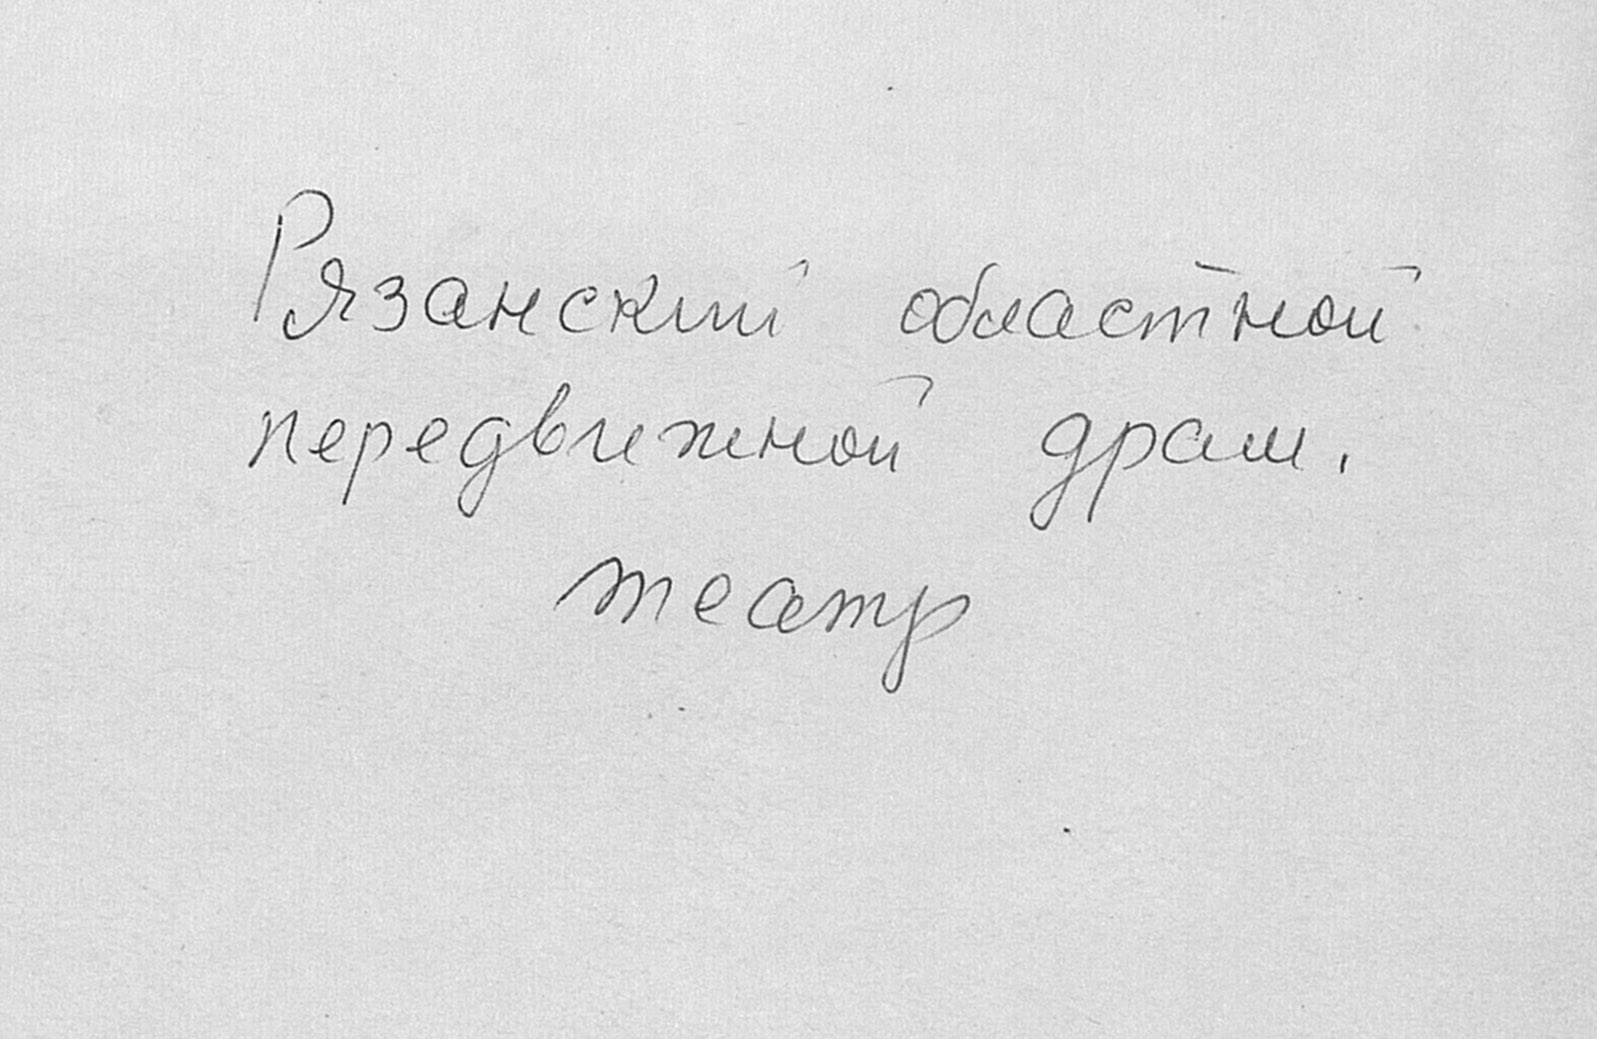 Рязанский областной
передвижной драм.
театр